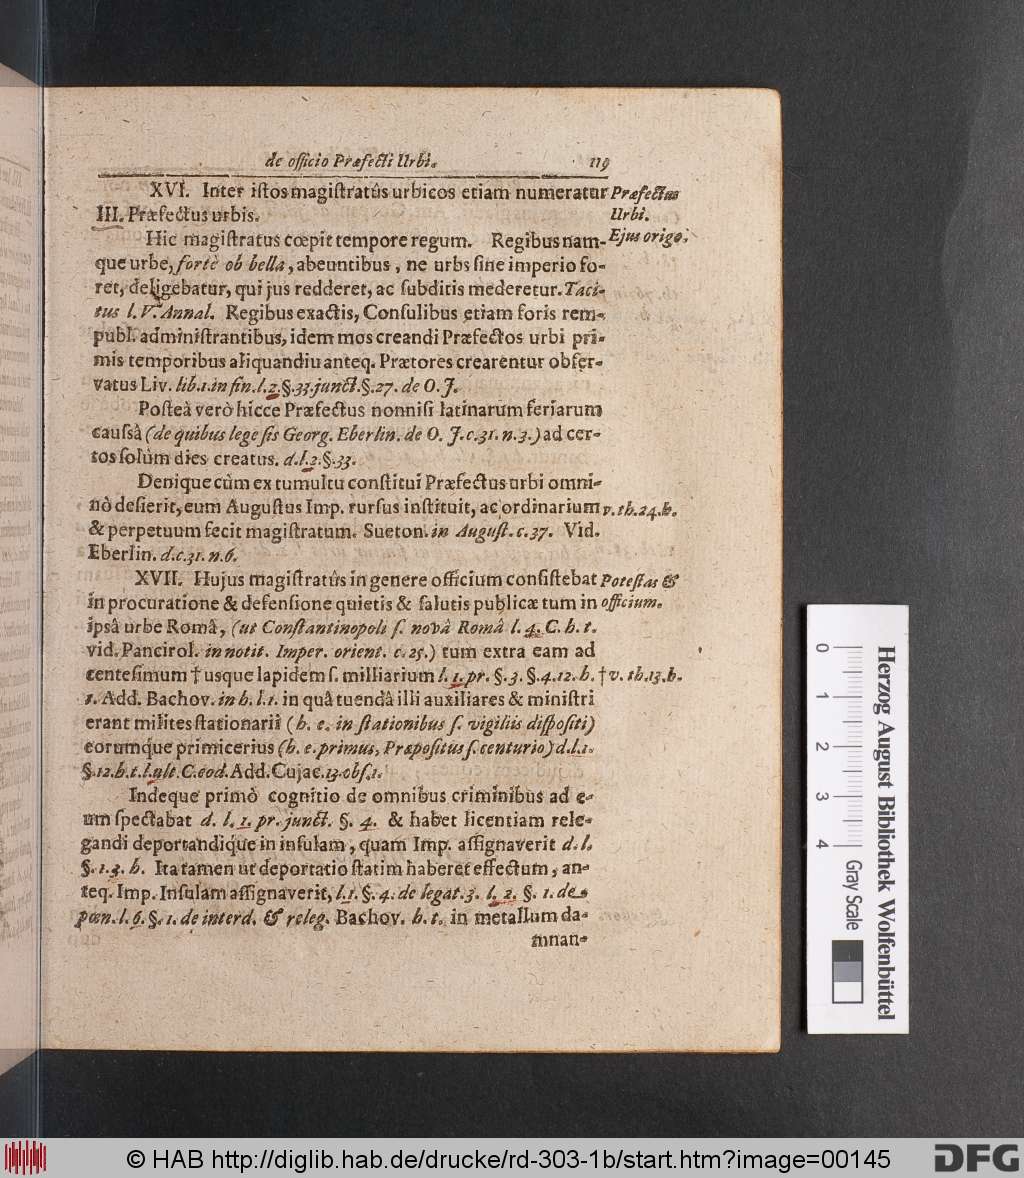 de officio Præfecti Urbi. 119
XVI. Inter iſtos magiſtratûs urbicos etiam numeratur Præfectus
III. Præfectus urbis. Urbi.
Hic magiſtratus cœpit tempore regum. Regibus nam- Ejus origo.
que urbe, fortè ob bella, abeuntibus, ne urbs ſine imperio fo-
ret, deligebatur, qui jus redderet, ac ſubditis mederetur. Taci-
tus l. V. Annal. Regibus exactis, Conſulibus etiam foris rem-
publ. adminiſtrantibus, idem mos creandi Præfectos urbi pri-
mis temporibus aliquandiu anteq. Prætores crearentur obſer-
vatus Liv. lib. 1. in fin. l. 2. §. 33. junct. §. 27. de O. J.
Poſteà verò hicce Præfectus nonniſi latinarum feriarum
cauſsâ (de quibus lege ſis Georg. Eberlin. de O. J. c. 31. n. 3.) ad cer-
tos ſolùm dies creatus. d. l. 2. §. 33.
Denique cùm ex tumultu conſtitui Præfectus urbi omni-
nò deſierit, eum Auguſtus Imp. rurſus inſtituit, ac ordinarium v. th. 24. h.
& perpetuum fecit magiſtratum. Sueton. in Auguſt. c. 37. Vid.
Eberlin. d. c. 31. n. 6.
XVII. Hujus magiſtratûs in genere officium conſiſtebat Poteſtas &
in procuratione & defenſione quietis & ſalutis publicæ tum in officium.
ipsâ urbe Româ, (ut Conſtantinopoli ſ. novâ Româ l. 4. C. h. t.
vid. Pancirol. in notit. Imper. orient. c. 25.) tum extra eam ad
centeſimum † usque lapidem ſ. milliarium l. 1. pr. §. 3. §. 4. 12. h. † v. th. 13. h.
1. Add. Bachov. in h. l. 1. in quâ tuendâ illi auxiliares & miniſtri
erant milites ſtationarii (h. e. in ſtationibus ſ. vigiliis diſpoſiti)
eorumque primicerius (h. e. primus, Præpoſitus ſ. centurio) d. l. 1.
§. 12. h. t. l. ult. C. eod. Add. Cujac. 13. obſ. 1.
Indeque primò cognitio de omnibus criminibus ad e-
um ſpectabat d. l. 1. pr. junct. §. 4. & habet licentiam rele-
gandi deportandique in inſulam, quam Imp. aſſignaverit d. l.
§. 1. 3. h. Ita tamen ut deportatio ſtatim haberet effectum, an-
teq. Imp. Inſulam aſſignaverit, l. 1. §. 4. de legat. 3. l. 2. §. 1. de
pœn. l. 6. §. 1. de interd. & releg. Bachov. h. t. in metallum da-
mnan-
0 1 2 3 4
Gray Scale
Herzog August Bibliothek Wolfenbüttel
© HAB http://diglib.hab.de/drucke/rd-303-1b/start.htm?image=00145
DFG